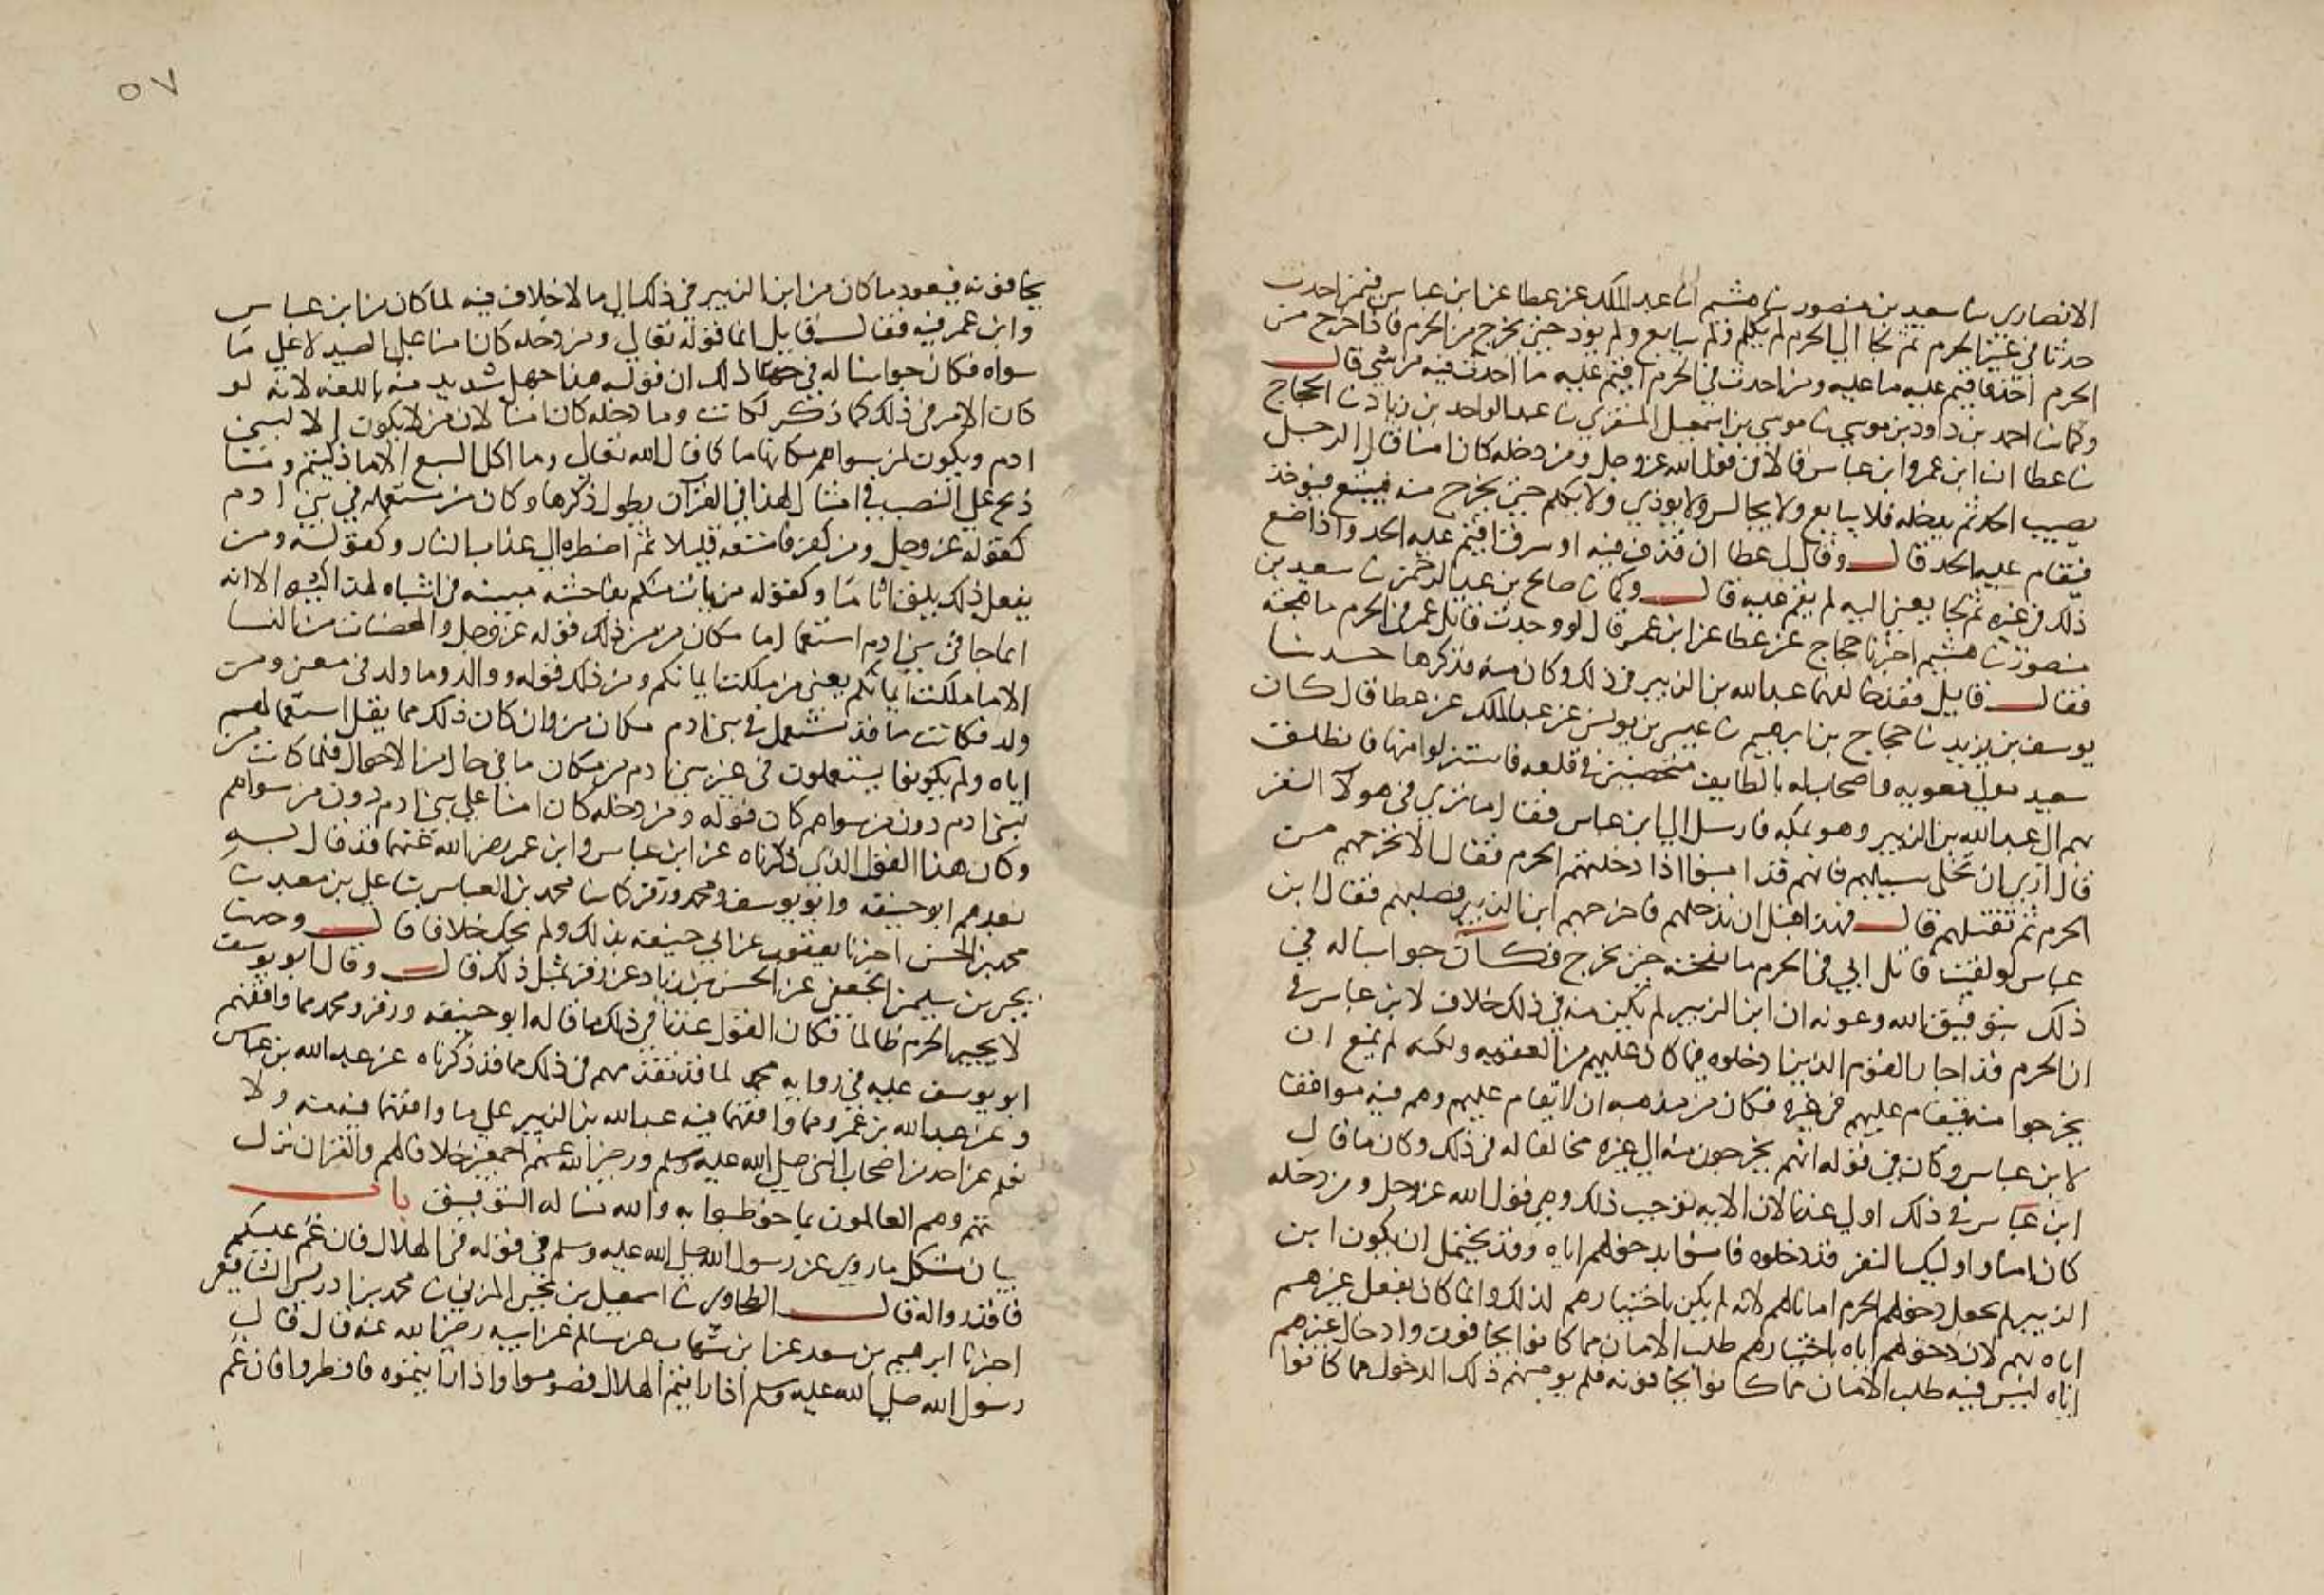 الانصارى ثنا سعيد بن منصور ثنا هشيم انا عبد الملك عن عطا عن ابن عباس فيمن احدث
حدثا فى غير الحرم ثم لجا الى الحرم لم يكلم ولم يبايع ولم يوذ حتى يخرج من الحرم فاذا خرج من
الحرم اخذ فاقيم عليه ما عليه ومن احدث فى الحرم اقيم عليه ما احدث فيه من شى قال
وكما ثنا احمد بن داود بن موسى ثنا موسى بن اسمعيل المنقرى ثنا عبد الواحد بن زياد ثنا الحجاج
ثنا عطا ان ابن عمر وابن عباس قالا فى قول الله عز وجل ومن دخله كان امنا قال الرجل
يصيب الحد ثم يدخله فلا يبايع ولا يجالس ولا يوذى ولا يكلم حتى يخرج منه فيتبع فيوخذ
فيقام عليه الحد قال وقال عطا ان قذف فيه او سرق اقيم عليه الحد واذا صنع
ذلك فى غيره ثم لجا يعنى اليه لم يقم عليه قال وكما ثنا صالح بن عبد الرحمن ثنا سعيد بن
منصور ثنا هشيم اخبرنا حجاج عن عطا عن ابن عمر قال لو وجدت قاتل عمر فى الحرم ما هجته
فقال قايل فقد خالفهما عبد الله بن الزبير فى ذلك وكان منه فذكرها حدثنا
يوسف بن يزيد ثنا حجاج بن ابرهيم ثنا عيسى بن يونس عن عبد الملك عن عطا قال كان
سعيد مولى معويه واصحاب له بالطايف متحصنين فى قلعه فاستنزلوا منها فانطلق
بهم الى عبد الله بن الزبير وهو بمكه فارسل الى ابن عباس فقال ما ترى فى هولآ النفر
قال ارى ان تخلى سبيلهم فانهم قد امنوا اذا دخلتهم الحرم فقال لا نخرجهم من
الحرم ثم نقتلهم قال فهذا قبل ان تدخلهم فاخرجهم ابن الزبير فصلبهم فقال ابن
عباس لو لقيت قاتل ابى فى الحرم ما هجته حتى يخرج فكان جوابنا له فى
ذلك بتوفيق الله وعونه ان ابن الزبير لم يكن منه فى ذلك خلاف لابن عباس فى
ان الحرم قد اجار القوم الذين دخلوه مما كان عليهم من العقوبه ولكنه لم يمنع ان
يخرجوا منه فيقام عليهم فى غيره فكان من مذهبه ان لا يقام عليهم وهم فيه موافقا
لابن عباس وكان فى قوله انهم يخرجون منه الى غيره مخالفا له فى ذلك وكان ما قال
ابن عباس فى ذلك اولى عندنا لان الايه توجب ذلك وهى قول الله عز وجل ومن دخله
كان امنا واوليك النفر قد دخلوه فامنوا بدخولهم اياه وقد يحتمل ان يكون ابن
الزبير لم يجعل دخولهم الحرم امانا لهم لانه لم يكن باختيارهم لذلك وانما كان بفعل غيرهم
اياه بهم لان دخولهم اياه باختيارهم طلب الامان مما كانوا يخافون وادخال غيرهم
اياه ليس فيه طلب الامان مما كانوا يخافونه فلم يومنهم ذلك الدخول مما كانوا
٥٧
يخافونه فيعود ما كان من ابن الزبير فى ذلك الى ما لا خلاف فيه لما كان من ابن عباس
وابن عمر فيه فقال قايل انما قوله تعالى ومن دخله كان امنا على الصيد لا على ما
سواه فكان جوابنا له فى ذلك ان قوله هذا جهل شديد منه باللغه لانه لو
كان الامر فى ذلك كما ذكر لكانت وما دخله كان امنا لان من لا يكون الا لبنى
ادم ويكون لمن سواهم مكانها ما كما قال الله تعالى وما اكل السبع الا ما ذكيتم وما
ذبح على النصب فى امثال لهذا فى القرآن يطول ذكرها وكان من مستعمله فى بنى ادم
كقوله عز وجل ومن كفر فامتعه قليلا ثم اضطره الى عذاب النار وكقوله ومن
يفعل ذلك يلق اثاما وكقوله من يات منكم بفاحشه مبينه فى اشباه لهذا كثيره الا انه
انما جا فى بنى ادم استعمال ما مكان من من ذلك قوله عز وجل والمحصنات من النسا
الا ما ملكت ايمانكم يعنى من ملكت ايمانكم ومن ذلك قوله ووالد وما ولد فى معنى ومن
ولد فكانت ما قد تستعمل فى بنى ادم مكان من وان كان ذلك مما يقل استعمالهم
اياه ولم يكونوا يستعملون فى غير بنى ادم من مكان ما فى حال من الاحوال فلما كانت من
لبنى ادم دون من سواهم كان قوله ومن دخله كان امنا على بنى ادم دون من سواهم
وكان هذا القول الذى ذكرناه عن ابن عباس وابن عمر رضى الله عنهما قد قال به
بعدهم ابو حنيفه وابو يوسف ومحمد وزفر كما ثنا محمد بن العباس ثنا على بن معبد ثنا
محمد بن الحسن اخبرنا يعقوب عن ابى حنيفه بذلك ولم يحك خلافا قال وحدثنا
يحيى بن سليمن الجعفى عن الحسن بن زياد عن زفر بمثل ذلك قال وقال ابو يوسف
لا يجير الحرم ظالما فكان القول عندنا فى ذلك ما قاله ابو حنيفه وزفر ومحمد مما وافقهم
ابو يوسف عليه فى روايه محمد لما قد تقدمهم فى ذلك مما قد ذكرناه عن عبد الله بن عباس
وعن عبد الله بن عمر ومما وافقهما فيه عبد الله بن الزبير على ما وافقهما فيه منه ولا
نعلم عن احد من اصحاب النبى صلى الله عليه وسلم ورضى الله عنهم اجمعين خلافا لهم والقران نزل
بلغتهم وهم العالمون بما خوطبوا به والله نساله التوفيق باب
بيان مشكل ما روى عن رسول الله صلى الله عليه وسلم فى قوله فى الهلال فان غم عليكم
فاقدروا له قال الطحاوى ثنا اسمعيل بن يحيى المزنى ثنا محمد بن ادريس الشافعى
اخبرنا ابرهيم بن سعد عن ابن شهاب عن سالم عن ابيه رضى الله عنه قال قال
رسول الله صلى الله عليه وسلم اذا رايتم الهلال فصوموا واذا رايتموه فافطروا فان غم